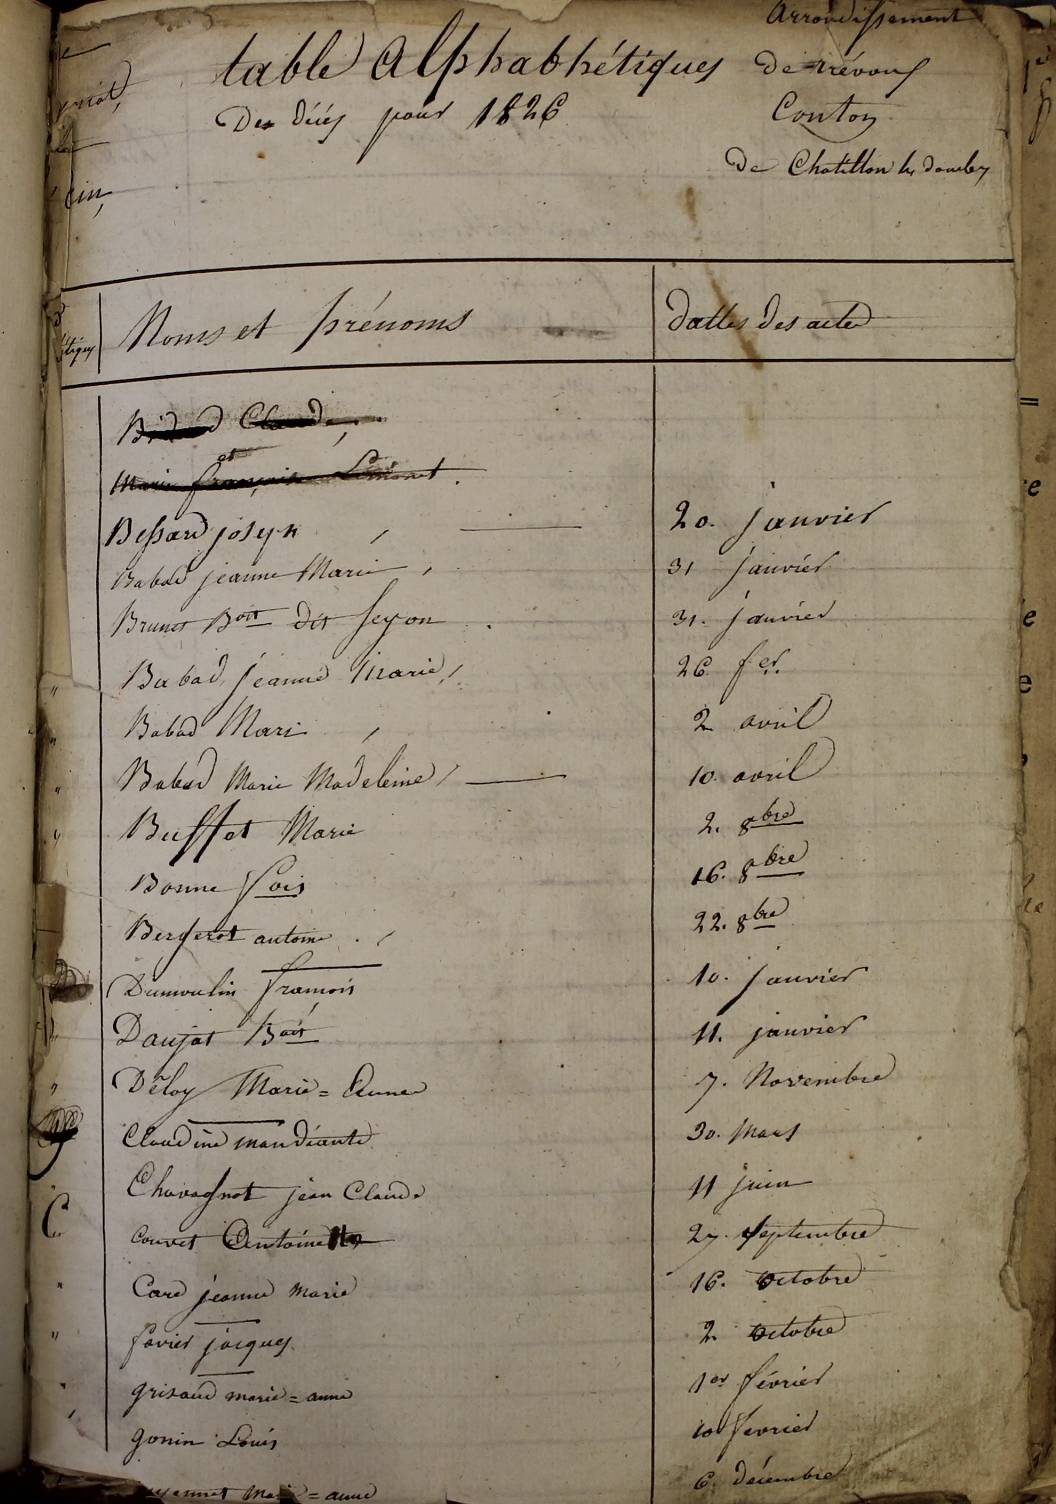 Arrondissement
table Alphabhétiques de trévoux
Des décés pour 1826
Canton
De Chatillon les dombes
Noms et prénoms
dattes des actes
Bessard joseph 20. janvier
Babad jeanne Marie 31 janvier
Brunet Boit dit 31. janvier
Babad jeanne Marie 26 fer.
Babad Marie 2 avril
Babad Marie Madeleine 10. avril
Buffet Marie 2. 8bre
Bonne fois 16. 8bre
Bergerot antoine 22. 8bre
Dumoulin francois 10. janvier
Daujat Boit 11. janvier
Déloy Marie = Anne 7. Novembre
Claudine mandiante 30. Mars
Chavagnot jean Claude 11 juin
Couvet Antoine 27. septembre
C
Card jeanne marie 16. octobre
favier jacques 2 octobre
grisaud marie = anne 1er février
gonin Louis 10 fevrier
= anne 6. décembre